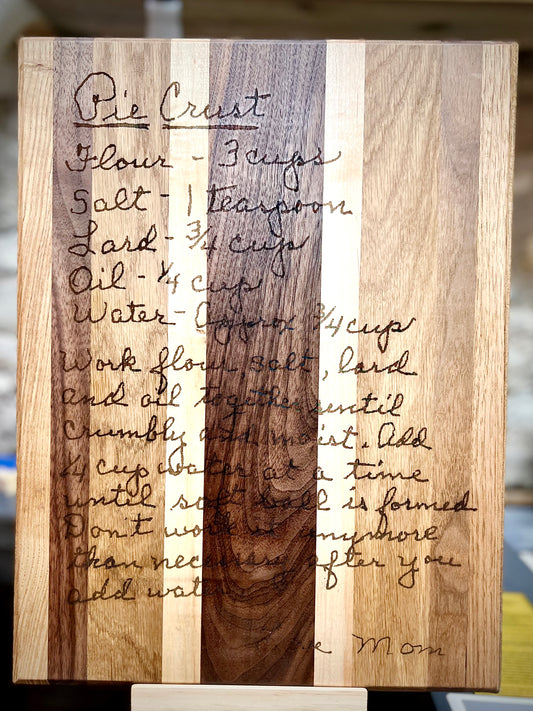 Pie Crust
Flour - 3 cups
Salt - 1 teaspoon
Lard - 3/4 cup
Oil - 1/4 cup
Water - Approx 3/4 cup
Work flour, salt, lard
and oil together until
crumbly and moist. Add
1/4 cup water at a time
until soft ball is formed
Don't work it anymore
than necessary after you
add water.
Love Mom